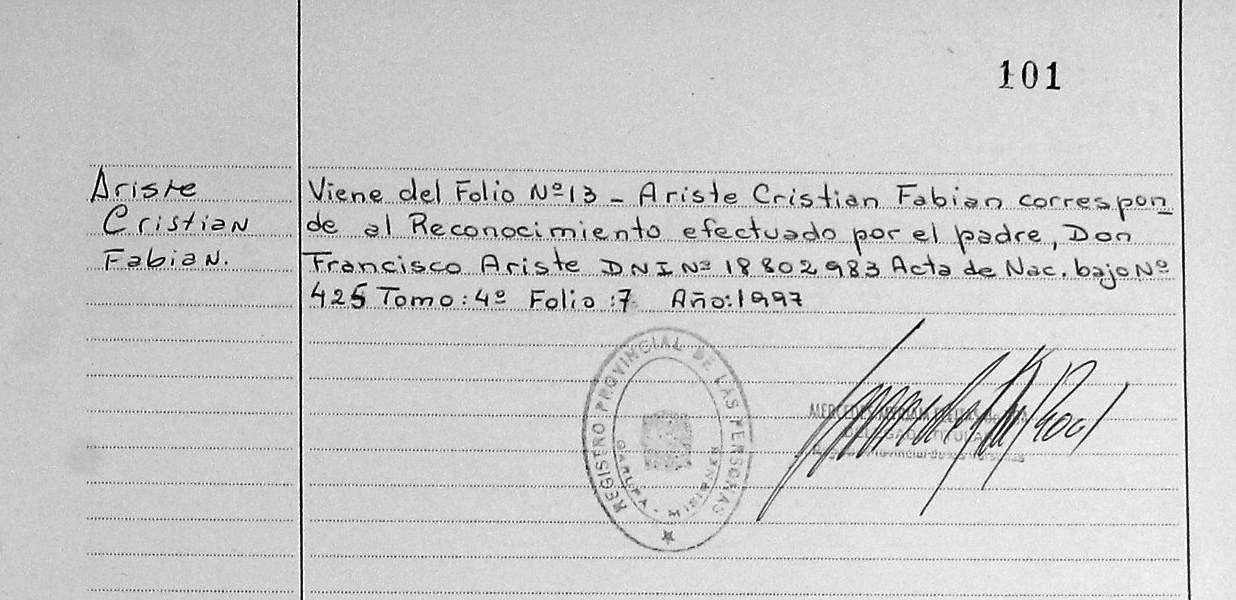 101
Ariste
Cristian
Fabian.
Viene del Folio Nº 13 - Ariste Cristian Fabian correspon-
de al Reconocimiento efectuado por el padre, Don
Francisco Ariste DNI Nº 18802983 Acta de Nac. bajo Nº
425 Tomo: 4º Folio: 7 Año: 1997
REGISTRO PROVINCIAL DE LAS PERSONAS
GARUPA - MISIONES
MERCEDES
DELEGADA TITULAR
Provincial de las Personas